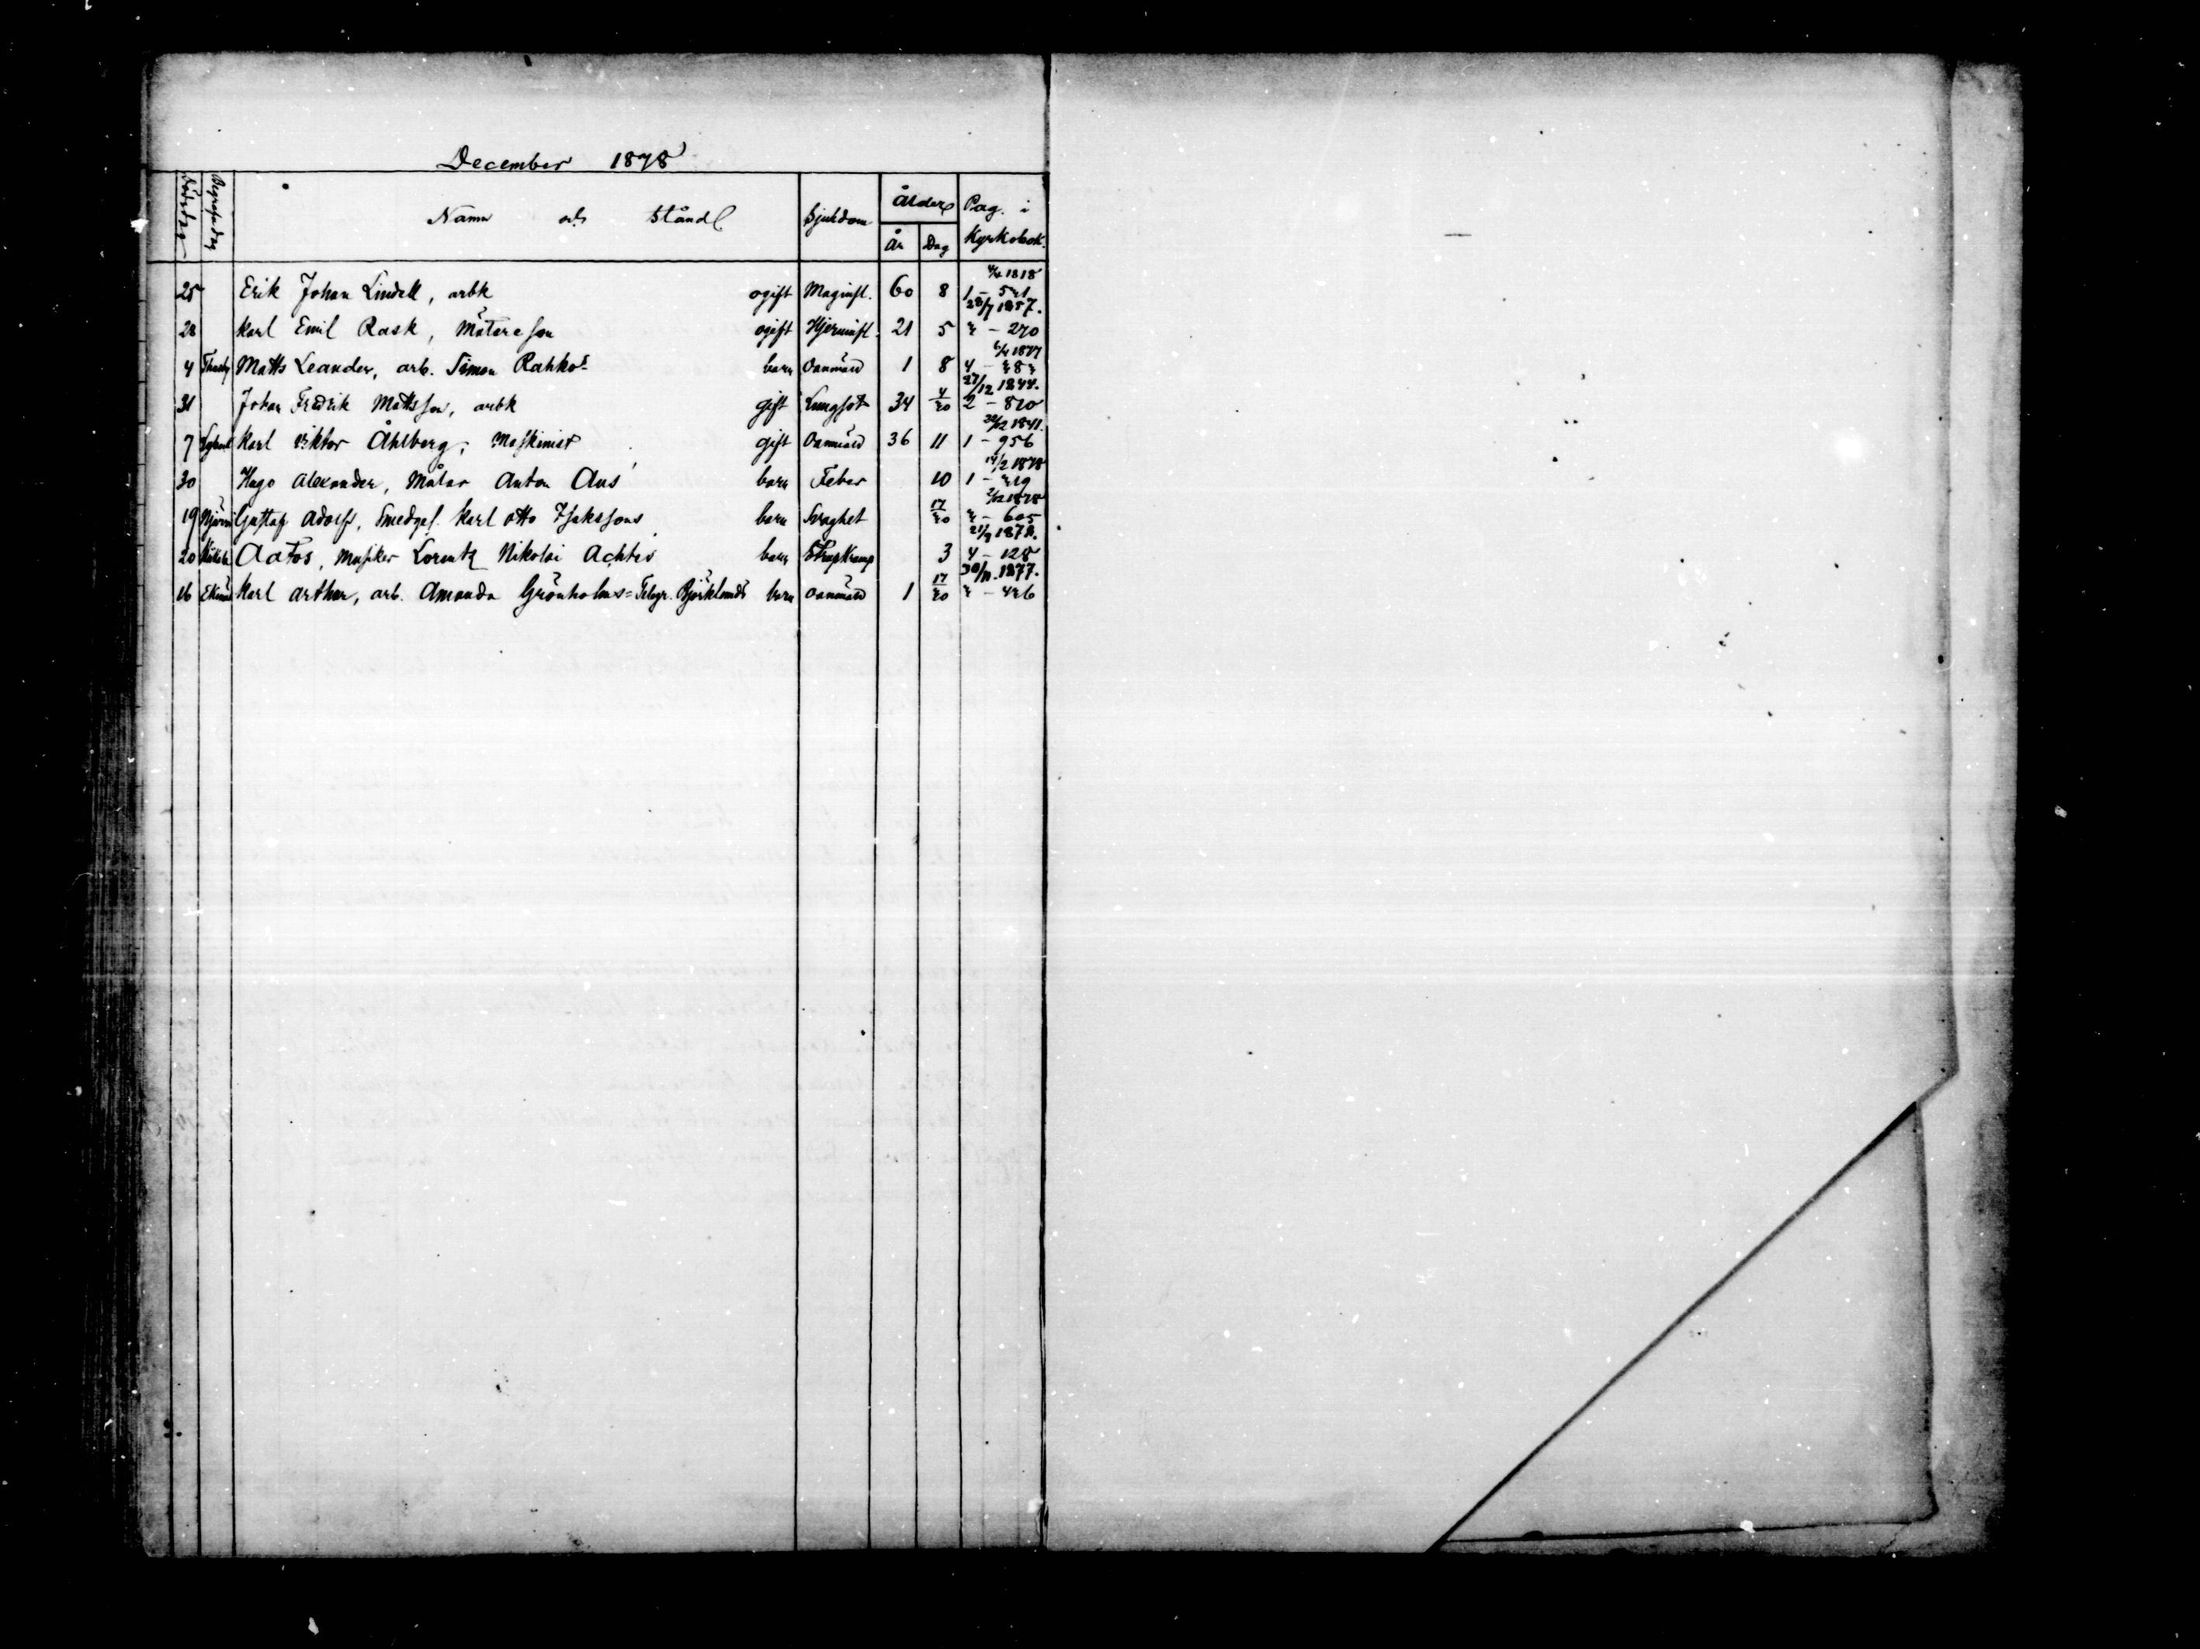 December 1878
Dödsdag Begrafn.dag Namn och Stånd Sjukdom Ålder År Dag Pag. i Kyrkobok.
4/4 1818
25 Erik Johan Lindell, arbk ogift Maginfl. 60 8 1 - 521
28/7 1857.
28 Karl Emil Rask, Målareson ogift Hjerninfl. 21 5 2 - 270
4/4 1877
4 Matts Leander, arb. Simon Rahkos barn Oanmäld 1 8 4 - 282
27/12 1844.
31 Johan Fredrik Mattsson, arbk gift Lungsot 34 4/30 2 - 820
1841.
7 Karl Viktor Åhlberg, Maskinist gift Oanmäld 36 11 1 - 956
14/2 1878
30 Hugo Alexander, Målar Anton Aus barn Feber 10 1 - 219
2/12 1878
19 Gustaf Adolf, Smedges. Karl Otto Isakssons barn Svaghet 17/30 2 - 605
21/9 1878.
20 Aatos, Musiker Lorentz Nikolai Achtés barn Strupkramp 3 4 - 128
30/11. 1877.
16 Karl Arthur, arb. Amanda Grönholms = Telegr. Björklunds barn oanmäld 1 17/30 2 - 426